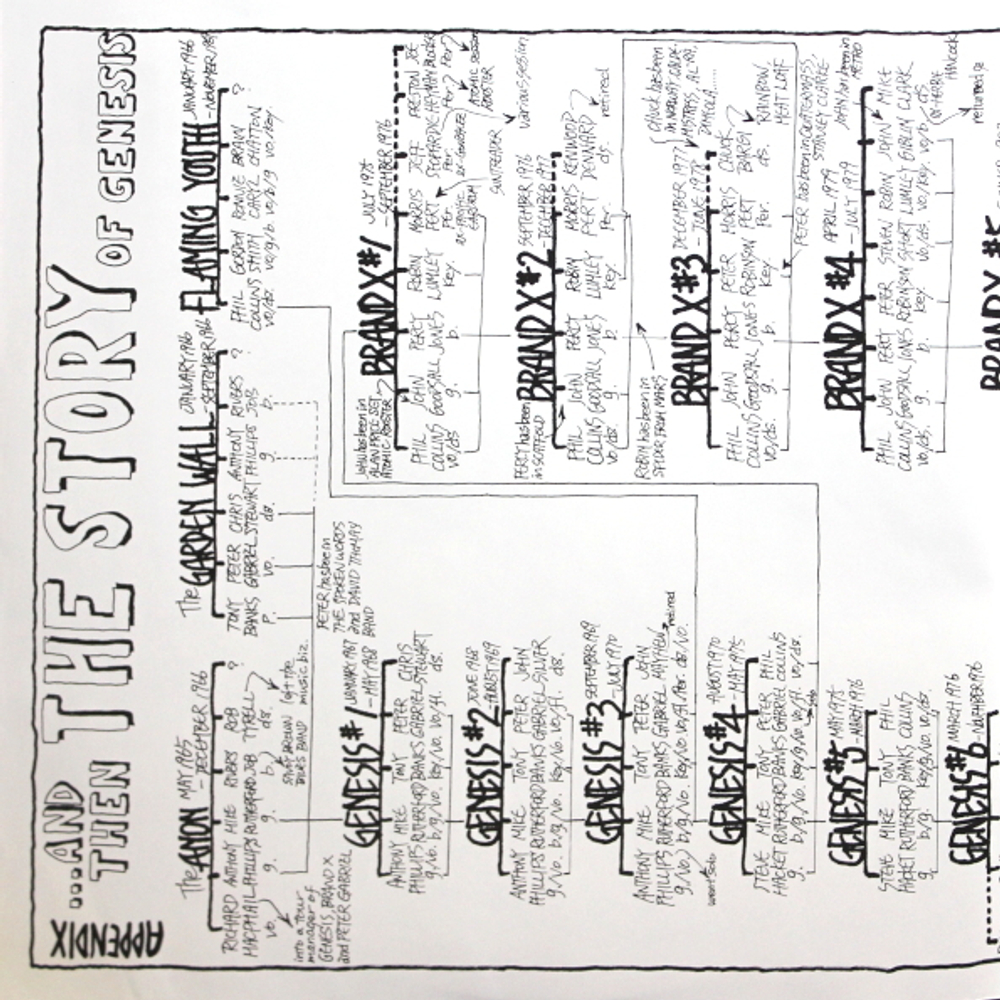 APPENDIX
...AND
THEN THE STORY OF GENESIS
The ANON MAY 1965
- DECEMBER 1966
RICHARD ANTHONY MIKE RIVERS ROB ?
MACPHAIL PHILLIPS RUTHERFORD JOB TYRELL
vo. g. g. b. ds.
into a tour
manager of
GENESIS, BRAND X
and PETER GABRIEL
SAVOY BROWN
BLUES BAND
left the
music biz.
The GARDEN WALL JANUARY 1966
- SEPTEMBER 1966
TONY PETER CHRIS ANTHONY RIVERS ?
BANKS GABRIEL STEWART PHILLIPS JOB
P. vo. ds. g. b.
PETER has been in
THE SPOKEN WORDS
and DAVID THMAY
BAND
FLAMING YOUTH JANUARY 1966
- NOVEMBER 1969
PHIL GORDON RONNIE BRIAN ?
COLLINS SMITH CARYL CHATTON
vo/ds. vo/g/b. vo/b/g vo/key.
GENESIS #1 JANUARY 1967
- MAY 1968
ANTHONY MIKE TONY PETER CHRIS
PHILLIPS RUTHERFORD BANKS GABRIEL STEWART
g/vo. b/g/vo. key/vo. vo/fl. ds.
GENESIS #2 JUNE 1968
- AUGUST 1969
ANTHONY MIKE TONY PETER JOHN
PHILLIPS RUTHERFORD BANKS GABRIEL SILVER
g/vo. b/g/vo. key/vo. vo/fl. ds.
GENESIS #3 SEPTEMBER 1969
- JULY 1970
ANTHONY MIKE TONY PETER JOHN
PHILLIPS RUTHERFORD BANKS GABRIEL MAYHEW
g/vo. b/g/vo. key/vo. vo/fl/Per. ds/vo.
went solo
retired
GENESIS #4 AUGUST 1970
- MAY 1975
STEVE MIKE TONY PETER PHIL
HACKET RUTHERFORD BANKS GABRIEL COLLINS
g. b/g/vo. key/g/vo. vo/fl. vo/ds.
solo
GENESIS #5 MAY 1975
- MARCH 1976
STEVE MIKE TONY PHIL
HACKET RUTHERFORD BANKS COLLINS
g. b/g. key/g. vo/ds.
GENESIS #6 MARCH 1976
- NOVEMBER 1976
John has been in
ALAN PRICE SET,
ATOMIC ROOSTER
BRAND X #1 JULY 1975
- SEPTEMBER 1976
PHIL JOHN PERCY ROBIN MORRIS JEFF PRESTON JOE
COLLINS GOODSALL JONES LUMLEY PERT
vo/ds. g. b. key. Per. Per. Per? Per?
ATOMIC ROOSTER
SUNTREADER
PERCY has been
in SCAFFOLD
BRAND X #2 SEPTEMBER 1976
- DECEMBER 1977
various session
PHIL JOHN PERCY ROBIN MORRIS KENWOOD
COLLINS GOODSALL JONES LUMLEY PERT DENNARD
vo/ds. g. b. key. Per. ds.
retired
ROBIN has been in
SPIDERS FROM MARS
BRAND X #3 DECEMBER 1977
- JUNE 1978
PHIL JOHN PERCY PETER MORRIS CHUCK
COLLINS GOODSALL JONES ROBINSON PERT BARGY
vo/ds. g. b. key. Per. ds.
RAINBOW,
MEAT LOAF
PETER has been in QUATERMASS,
STANLEY CLARKE
BRAND X #4 APRIL 1979
- JULY 1979
JOHN has been in
METRO
PHIL JOHN PERCY PETER STEVEN ROBIN JOHN MIKE
COLLINS GOODSALL JONES ROBINSON SHORT LUMLEY GIBLIN CLARK
vo/ds. g. b. key. vo/ds. vo/key. vo/b. ds.
ex-HERBIE
HANCOCK
returned
BRAND X #5